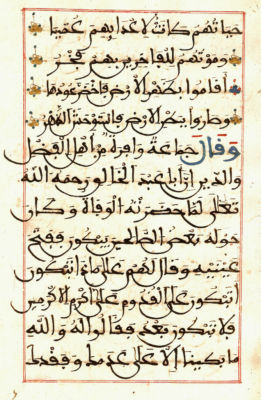 حياتهم كانت لاعدايهم
وموتهم للفاخرين بهم فخر
أقاموا بظهر الارض فاخضر عودها
وصاروا ببطن الارض فاستوحش الظهر
وقال جماعة وافرة من أهل الفضل
والدين ان ابا عبد الخالق رحمه الله
تعلى لما حضرته الوفاة وكان
حوله بعض الصالحين يبكون ففتح
عينيه وقال لهم على ماذا تبكون
أتبكون على القدوم على اكرم الاكرمين
فلا تبكون بعد فقالوا له والله
ما بكينا إلا على عدمك وفقدك